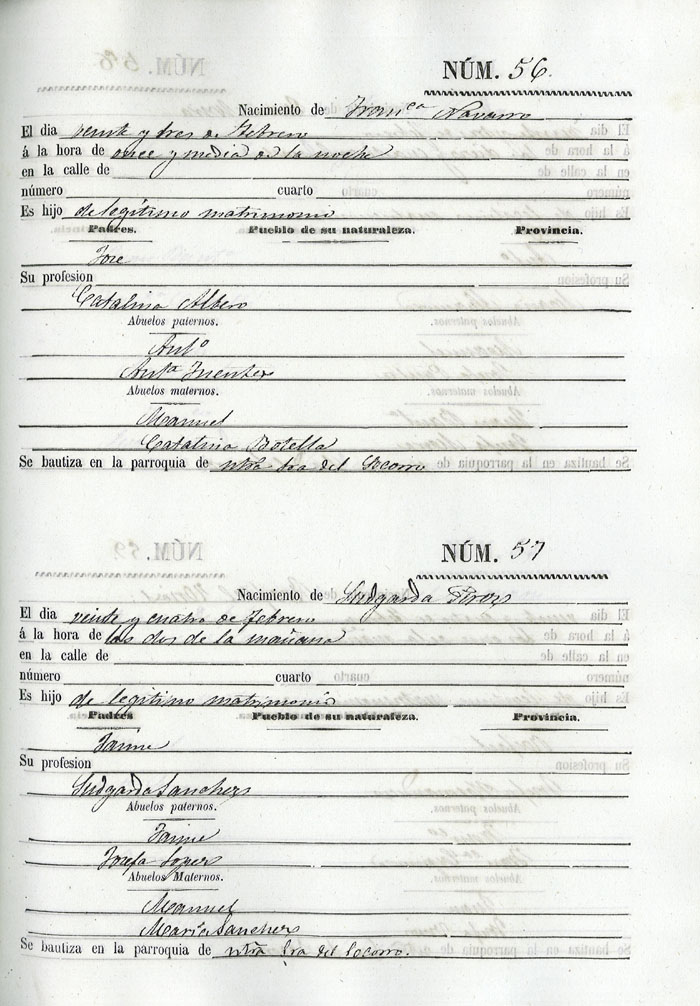 NÚM. 56.
Nacimiento de Franca Navarro
El dia veinte y tres de Febrero
á la hora de once y media de la noche
en la calle de
número cuarto
Es hijo de legítimo matrimonio
Padres. Pueblo de su naturaleza. Provincia.
Jose
Su profesion
Catalina Albero
Abuelos paternos.
Anto
Anta Fuentes
Abuelos maternos.
Manuel
Catalina Botella
Se bautiza en la parroquia de ntra Sra del Socorro
NÚM. 57
Nacimiento de Ludgarda
El dia veinte y cuatro de Febrero
á la hora de las dos de la mañana
en la calle de
número cuarto
Es hijo de legitimo matrimonio
Padres Pueblo de su naturaleza. Provincia.
Jaime
Su profesion
Ludgarda Sanchez
Abuelos paternos.
Jaime
Josefa Lopez
Abuelos Maternos.
Manuel
Maria Sanchez
Se bautiza en la parroquia de ntra Sra del Socorro.